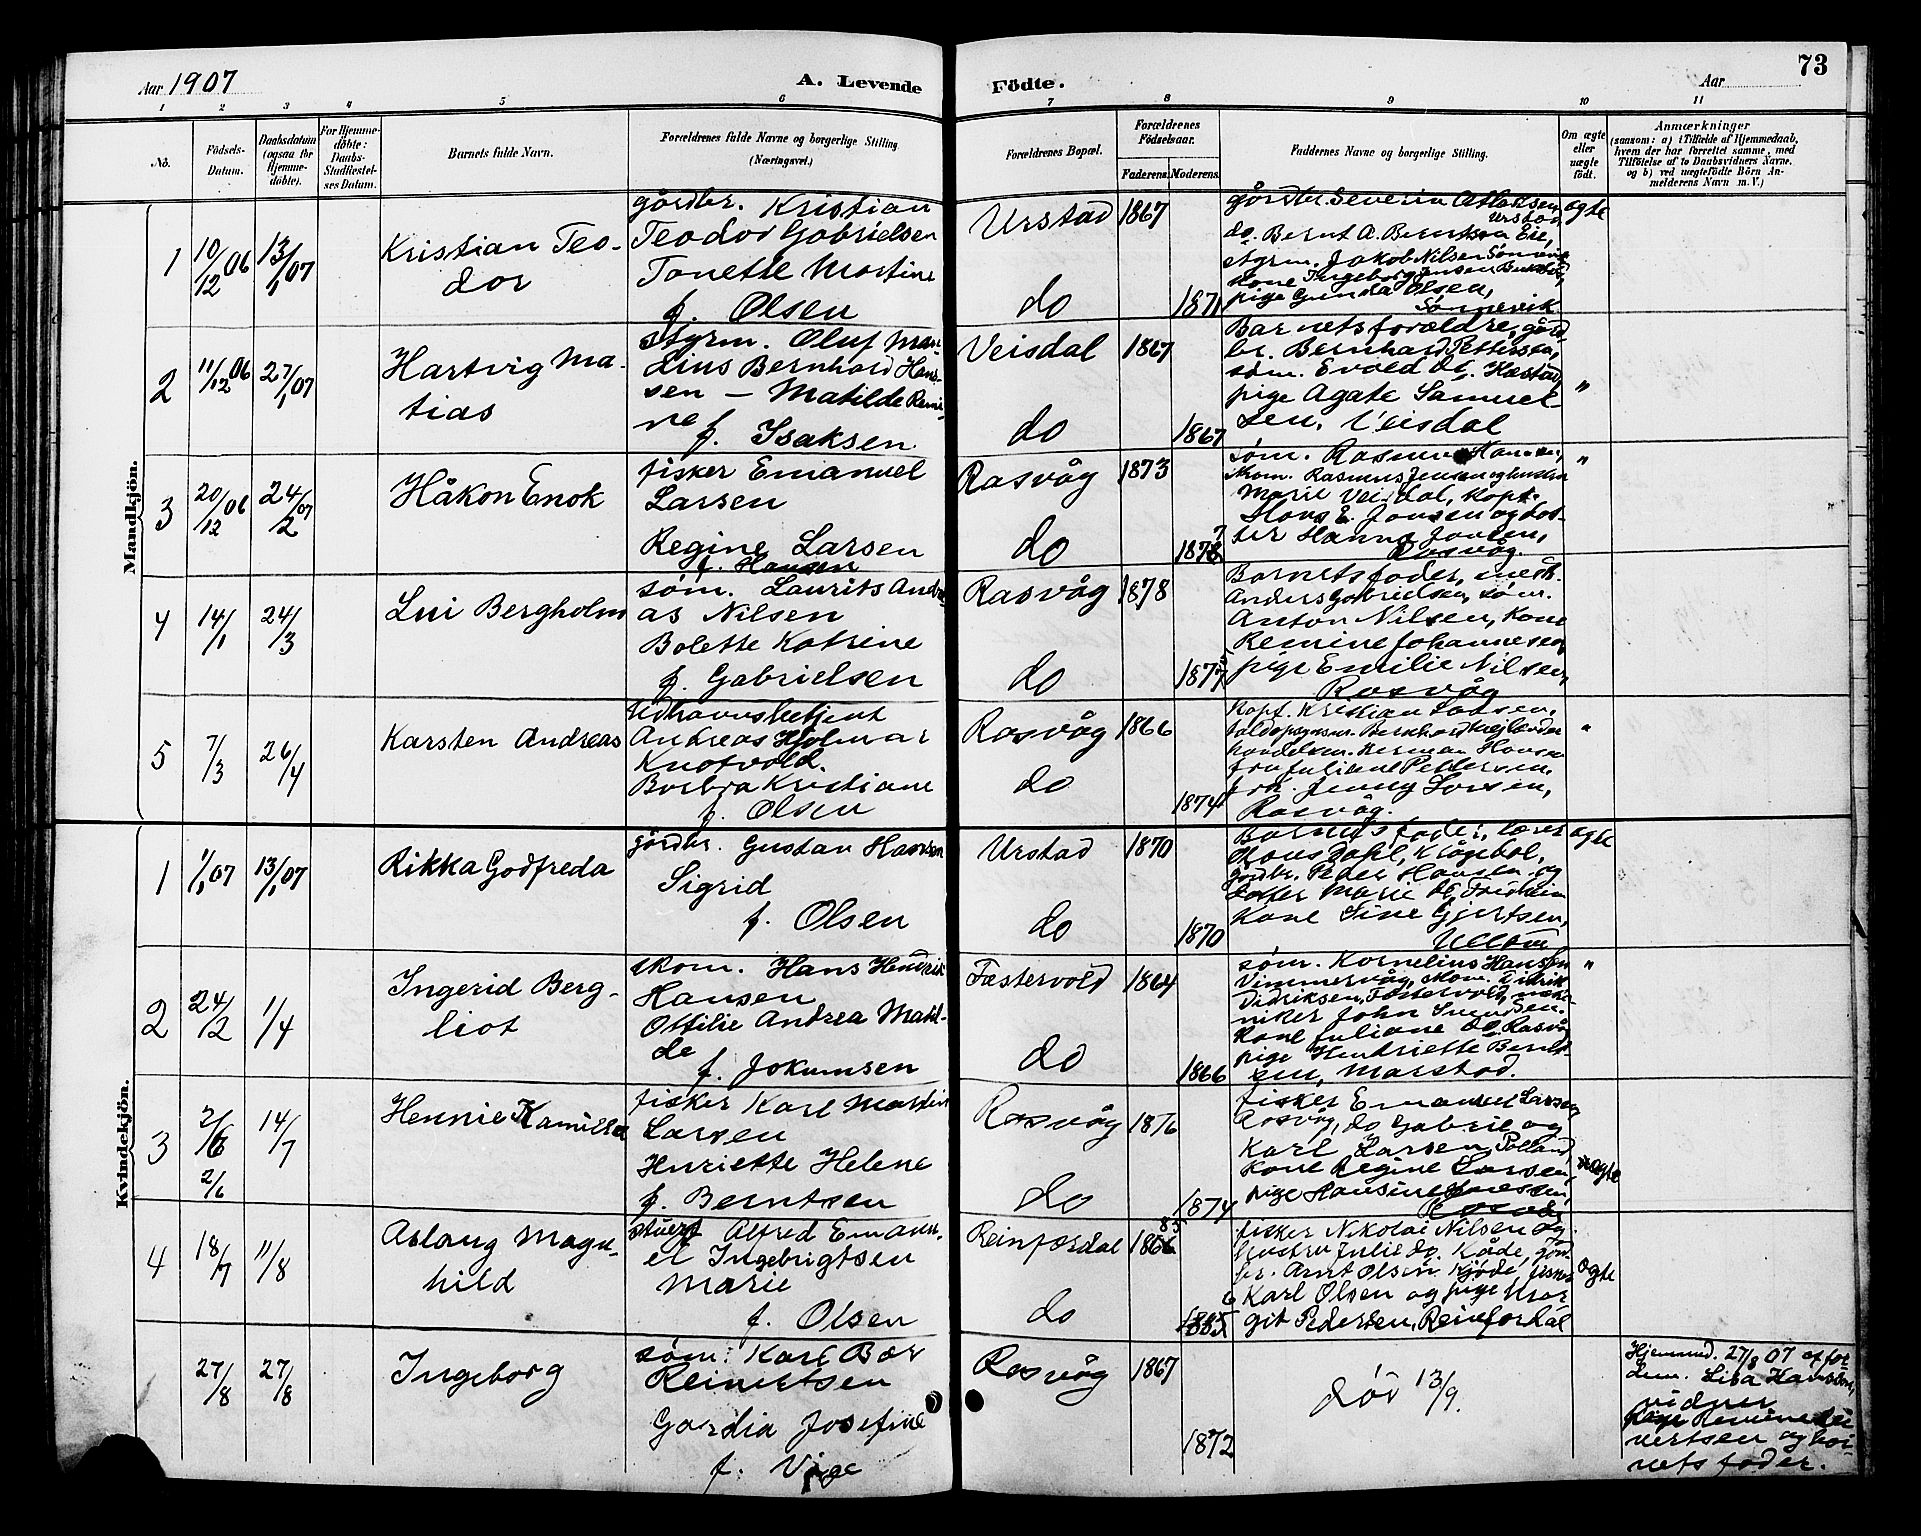 Aar 1907
A. Levende
Födte.
Aar
73
1 2 3 4 5 6 7 8 9 10 11
No.
Födsels-
Datum.
Daabsdatum
(ogsaa for
Hjemme-
döbte).
For Hjemme-
döbte:
Daabs-
Stadfæstel-
ses Datum.
Barnets fulde Navn.
Forældrenes fulde Navne og borgerlige Stilling.
(Næringsvei.)
Forældrenes Bopæl.
Forældrenes
Födselsaar.
Faderens.
Moderens.
Faddernes Navne og borgerlige Stilling.
Om ægte
eller
uægte
födt.
Anmærkninger
(saasom: a) i Tilfælde af Hjemmedaab,
hvem der har forrettet samme, med
Tilföielse af to Daabsvidners Navne,
og b) ved uægtefödte Börn An-
melderens Navn m. V.)
Mandkjön.
1
10/12 06
13/1 07
Kristian Teo-
dor
gårdbr. Kristian
Teodor Gabrielsen
Tonette Martine
f. Olsen
Urstad
do
1867
1871
gårdbr. Severin Atlaksen
Urstad,
do. Bernt A. Berntsen Eie,
styrm. Jakob Nilsen
kone Ingeborg Jensen
pige Gunda Olsen,
ægte
2
11/12 06
27/1 07
Hartvig Ma-
tias
Styrm. Oluf Mar-
dius Bernhard Han-
sen – Matilde Remi-
ne f. Isaksen
Veisdal
do
1867
1867
Barnets forældre, gård-
br. Bernhard Pettersen,
søm. Evald do. Hæstad,
pige Agate Samuel-
sen, Veisdal
"
3
20/12 06
24/2 07
Håkon Enok
fisker Emanuel
Larsen
Regine Larsen
f. Hansen
Rasvåg
do
1873
7
1878
søm. Rasmus Hansen,
skom. Rasmus Jensen og hustru
Marie Veisdal, kapt.
Hans E. Jonsen og dat-
ter Hanna Jonsen,
Rasvåg.
"
4
14/1
24/3
Lui Bergholm
søm. Laurits Andre-
as Nilsen
Bolette Katrine
f. Gabrielsen
Rasvåg
do
1878
1877
Barnets fader, mesk.
Anders Gabrielsen, søm.
Anton Nilsen, kone
Remine Johannesen
pige Emilie Nilsen,
Rasvåg
5
7/3
26/4
Karsten Andreas
Udhavnsbetjent
Andreas Hjalmar
Knotvold.
Barbra Kristiane
f. Olsen
Rasvåg
do
1866
1874
Kapt. Kristian Larsen,
toldopsynsm. Bernhard
handelsm. Herman Hansen
fru Juliane Pettersen,
frk. Jenny Larsen,
Rasvåg.
"
Kvindekjön.
1
1/1 07
13/1 07
Rikka Godfreda
gårdbr. Gustav Hansen
Sigrid
f. Olsen
Urstad
do
1870
1870
Barnets fader, lærer
Hans Dahl, Klågebøl,
gårdbr. Peder Hansen og
datter Marie do,
Kone Sine Gjertsen,
ægte
2
24/2
1/4
Ingerid Berg-
liot
skom. Hans Hendrik
Hansen
Ottilie Andrea Matil-
de
f. Jokumsen
Fæstervold
do
1864
1866
søm. Kornelius Hansen
Vimmervåg, skom. Didrik
Didriksen, Fæstervold, maski-
niker John Svendsen.
kone Juliane do, Rasvåg
pige Henriette Bernt-
sen, Marstad.
"
3
2/6
14/7
2/6
Hennie Kamilla
fisker Karl Martin
Larsen
Henriette Helene
f. Berntsen
Rasvåg
do
1876
1874
fisker Emanuel Larsen
Rasvåg, do Gabriel og
Karl Larsen,
Kone Regine Larsen,
pige Hansine
ægte
4
18/7
11/8
Aslaug Magn-
hild
stuert Alfred Emanu-
el Ingebrigtsen
Marie
f. Olsen
Reinfordal
do
85
1866
6
1885
fisker Nikolai Nilsen og
hustru Julie do. Kåde, går-
br. Arnt Olsen Kjøde, fisker
Karl Olsen og pige Mar-
git Pedersen, Reinfordal
ægte
27/8
27/8
Ingeborg
søm. Karl Bær
Reinertsen
Gardia Josefine
f. Vige
Rasvåg
1867
1872
død 13/9.
Hjemmed. 27/8 07 af jor-
dem. Lisa Hansen,
vidner
pige Remine Rei-
nertsen og bar-
nets fader.